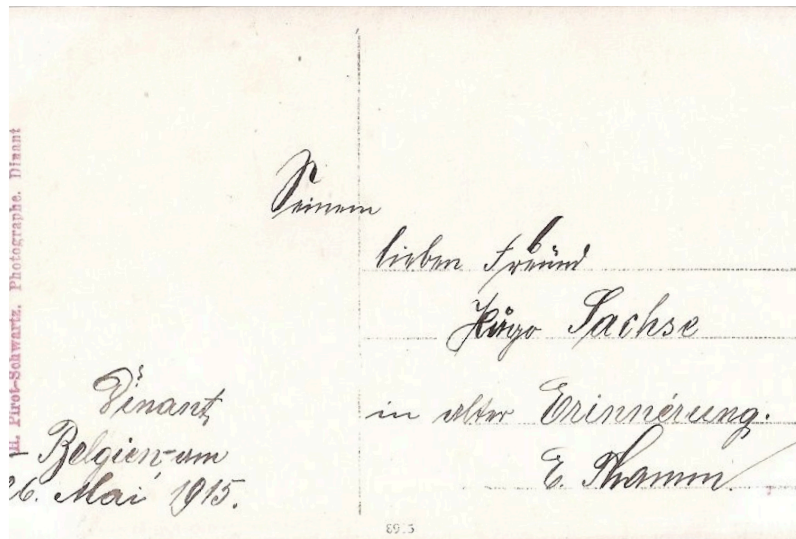 Pirot-Schwartz. Photographe. Dinant
Seinem
lieben Freund
Hugo Sachse
in alter Erinnerung.
E. Thamm.
Dinant,
- Belgien - am
26. Mai 1915.